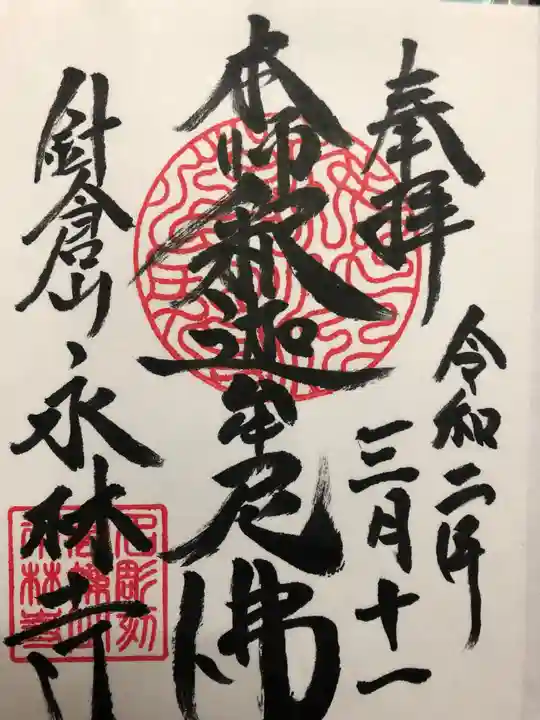 奉拝
令和二年
三月十一
本師釈迦牟尼佛
針倉山
永林寺